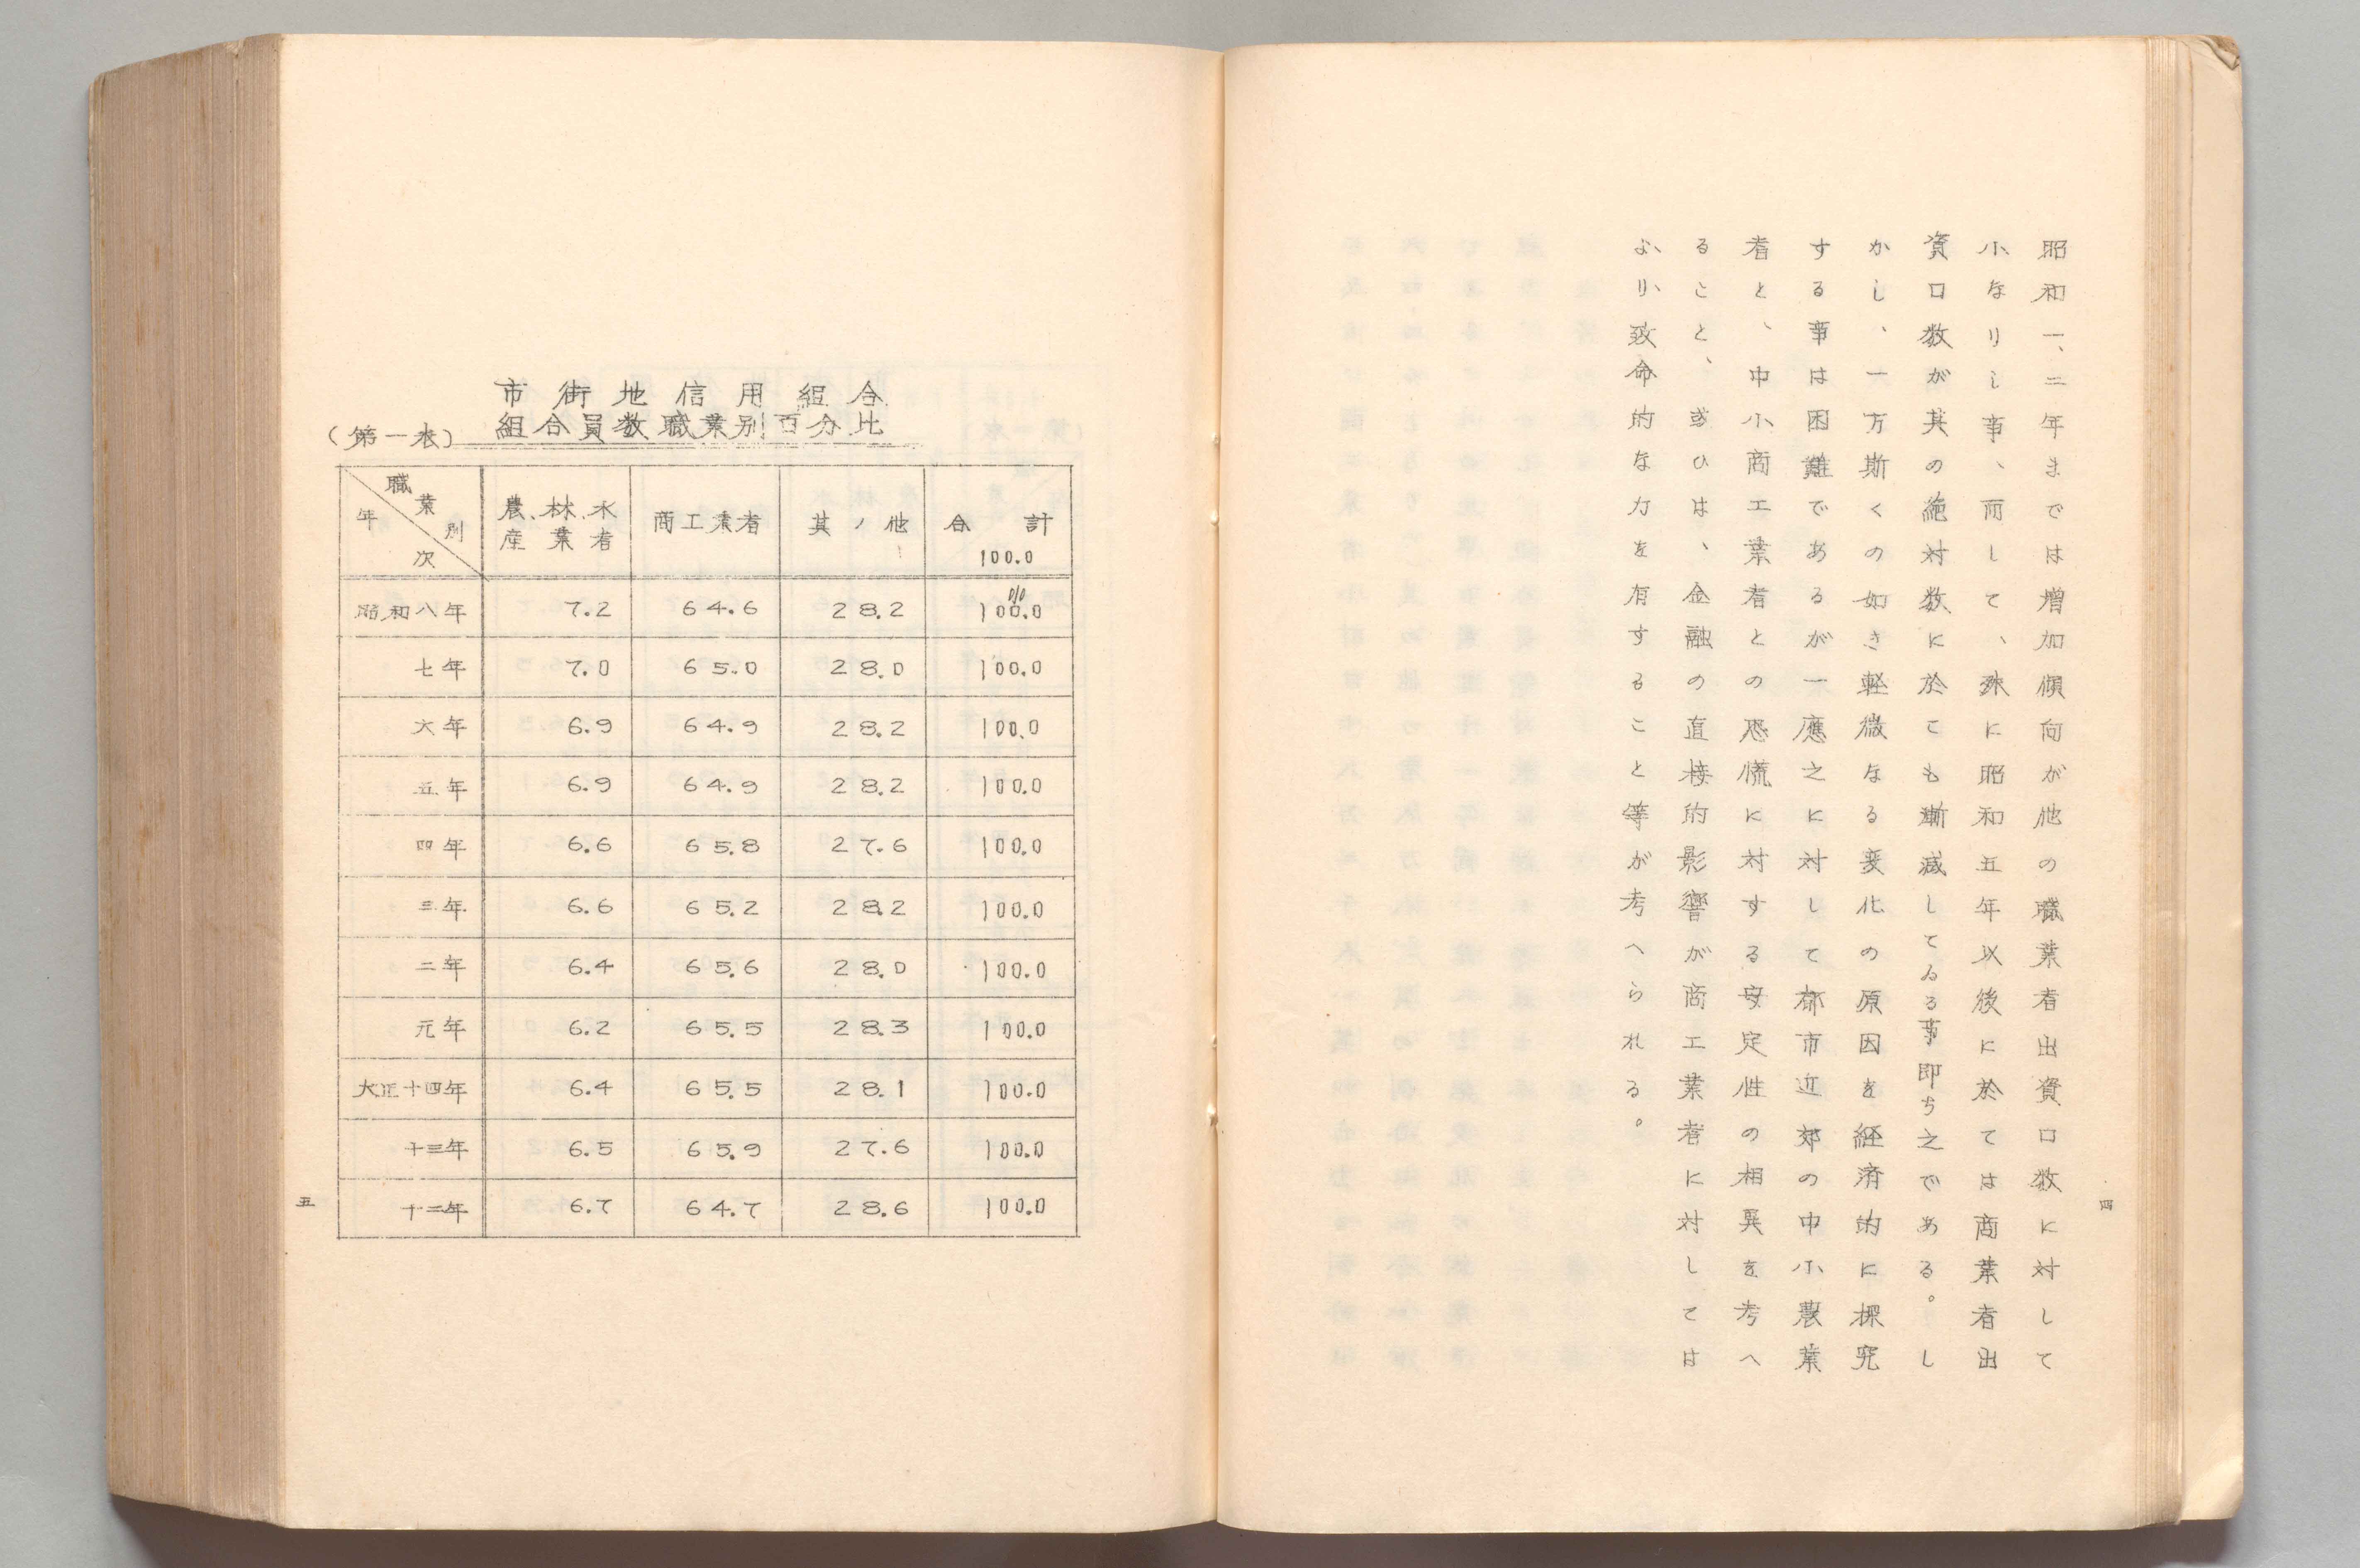 昭和一、二年までは増加傾向が他の職業者出資口数に対して
小なりし事、而して、殊に昭和五年以後に於ては商業者出
資口数が其の絶対数に於ても漸減してゐる事即ち之である。し
かし、一方斯くの如き軽微なる変化の原因を経済的に探究
する事は困難であるが一應之に対して都市近郊の中小農業
者と、中小商工業者との恐慌に対する安定性の相異を考へ
ること、或ひは、金融の直接的影響が商工業者に対しては
より致命的な力を有すること等が考へられる。
四
市街地信用組合
組合員数職業別百分比
(第一表)
職業別 年次 農、林、水産業者 商工業者 其ノ他 合計 100.0
昭和八年 7.2 64.6 28.2 100.0 %
七年 7.0 65.0 28.0 100.0
六年 6.9 64.9 28.2 100.0
五年 6.9 64.9 28.2 100.0
四年 6.6 65.8 27.6 100.0
三年 6.6 65.2 28.2 100.0
二年 6.4 65.6 28.0 100.0
元年 6.2 65.5 28.3 100.0
大正十四年 6.4 65.5 28.1 100.0
十三年 6.5 65.9 27.6 100.0
十二年 6.7 64.7 28.6 100.0
五